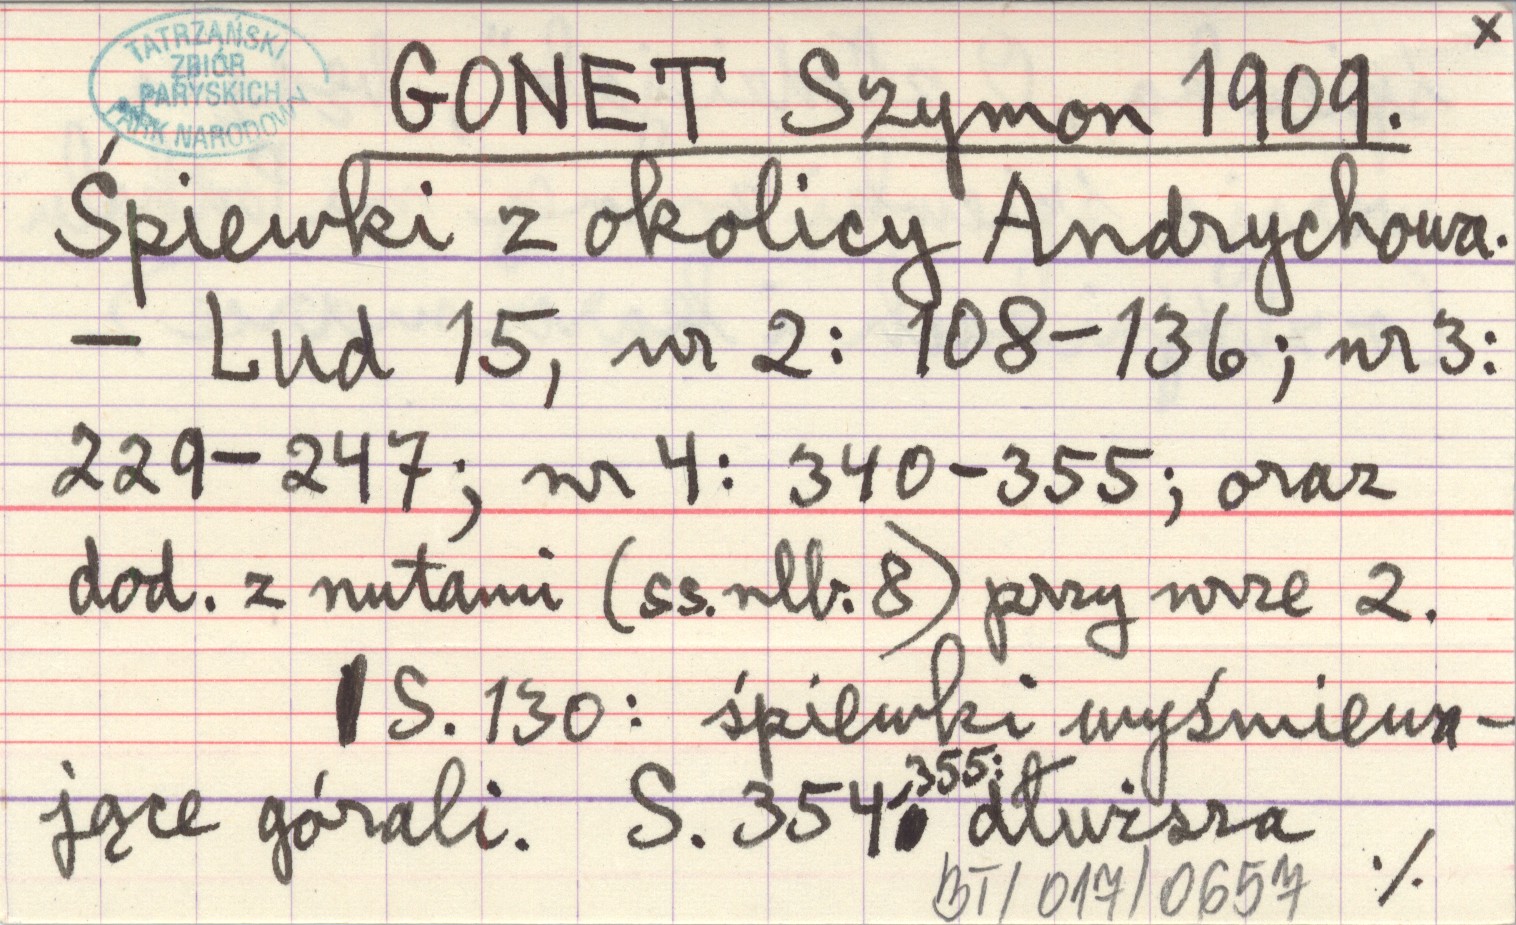 x
TATRZAŃSKI
ZBIÓR
PARYSKICH
PARK NARODOWY
GONET Szymon 1909.
Śpiewki z okolicy Andrychowa.
— Lud 15, nr 2: 108–136; nr 3:
229–247; nr 4: 340–355; oraz
dod. z nutami (ss. nlb. 8) przy nrze 2.
S. 130: śpiewki wyśmiewa-
jące górali. S. 354-355: dłuższa
BT/017/0657 ·/.